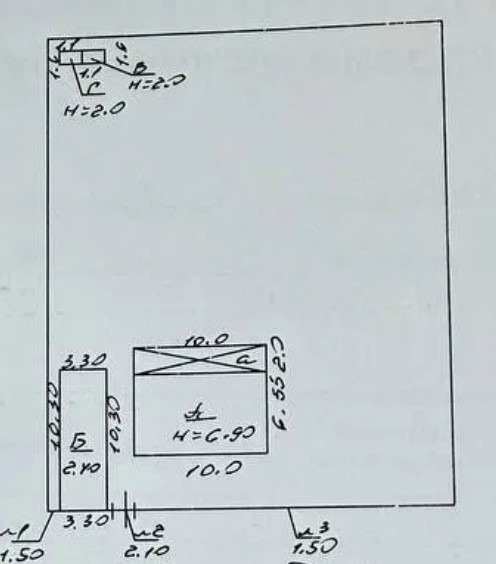 1.1
1.6
1.6
1.1
В
Н=2.0
Г
Н=2.0
10.0
а
2.0
6.55
3.30
10.30
10.30
Б
2.40
А
Н=6.90
10.0
3.30
№1
1.50
№2
2.10
№3
1.50